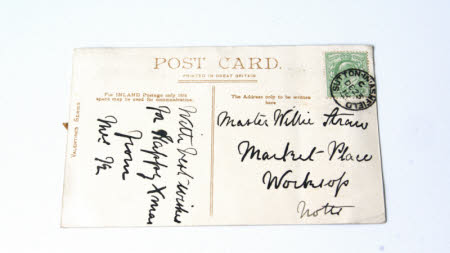 POST CARD.
PRINTED IN GREAT BRITAIN
For INLAND Postage only this
space may be used for communication.
The Address only to be
written here.
VALENTINES SERIES
With best-wishes
for Happy Xmas
from
Master Willie Straw
Market-Place
Worksop
Notts